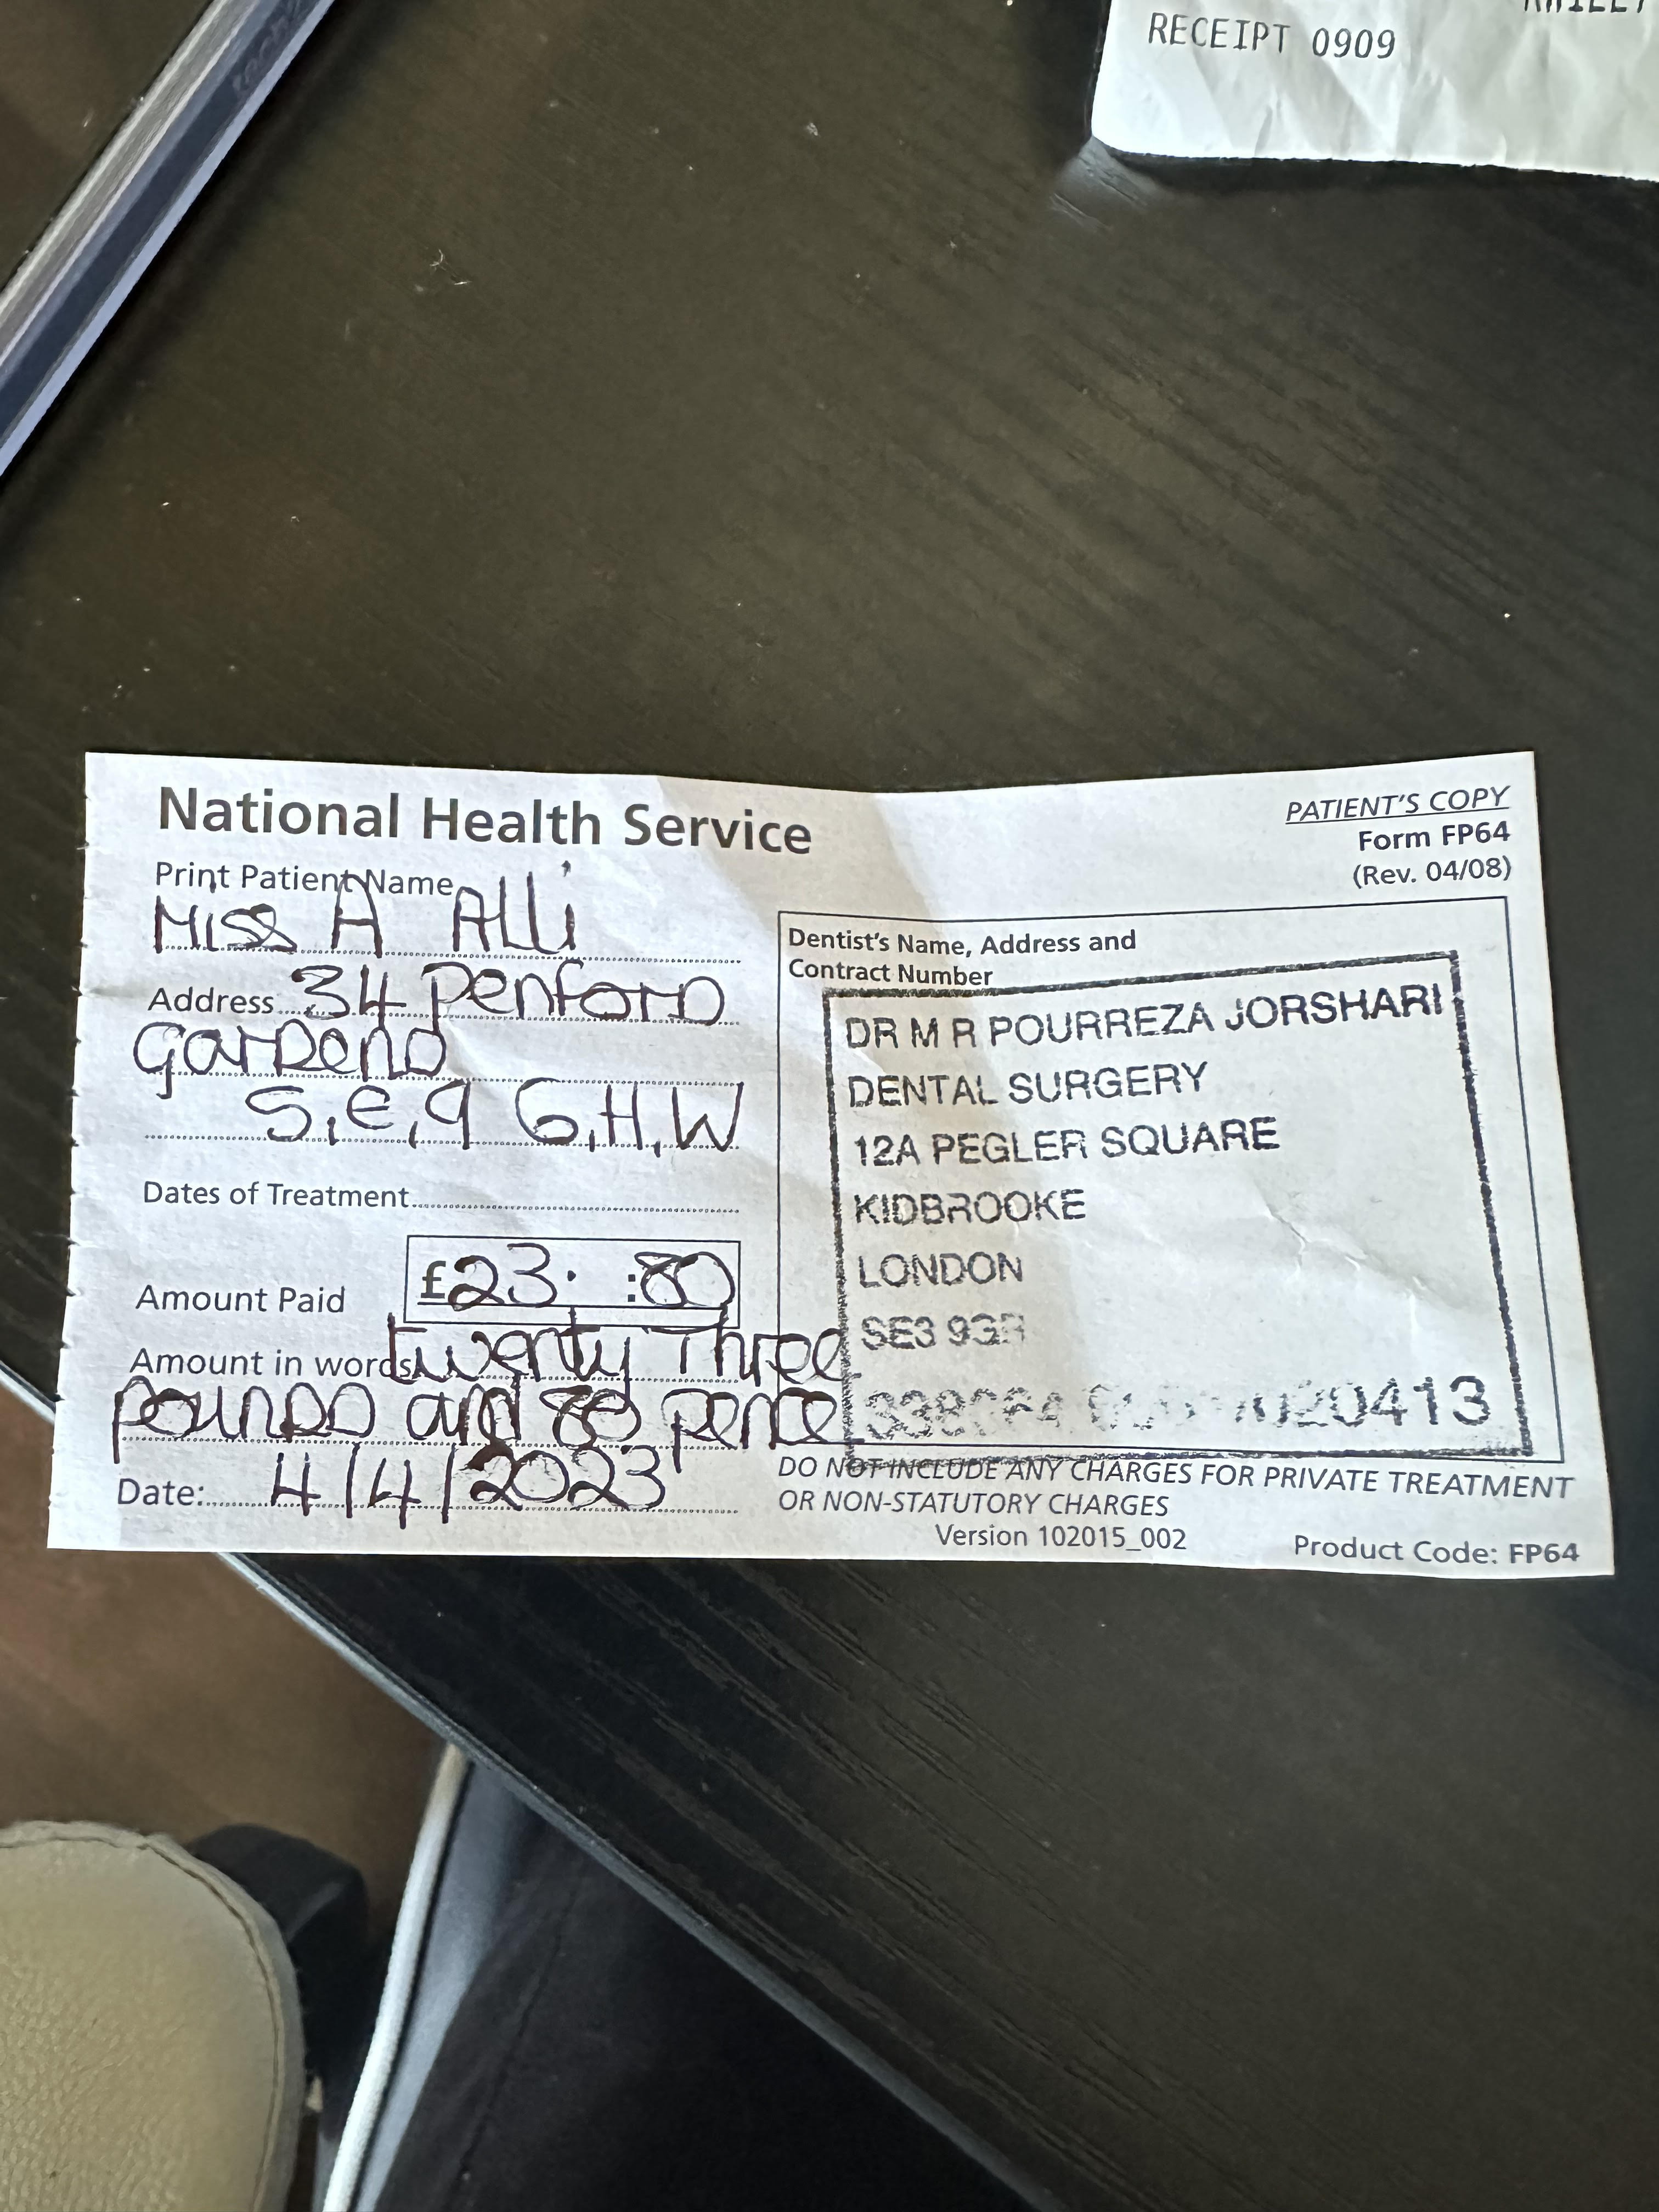 RECEIPT 0909
National Health Service
PATIENT'S COPY
Form FP64
(Rev. 04/08)
Print Patient Name
Miss A Alli
Address 34 Penford
Gardend
S,e,9 G,H,W
Dates of Treatment
Amount Paid £23. :80
Amount in words twenty Three
pounds and 80 pence
Date: 4/4/2023
Dentist's Name, Address and
Contract Number
DR M R POURREZA JORSHARI
DENTAL SURGERY
12A PEGLER SQUARE
KIDBROOKE
LONDON
SE3
DO NOT INCLUDE ANY CHARGES FOR PRIVATE TREATMENT
OR NON-STATUTORY CHARGES
Version 102015_002
Product Code: FP64